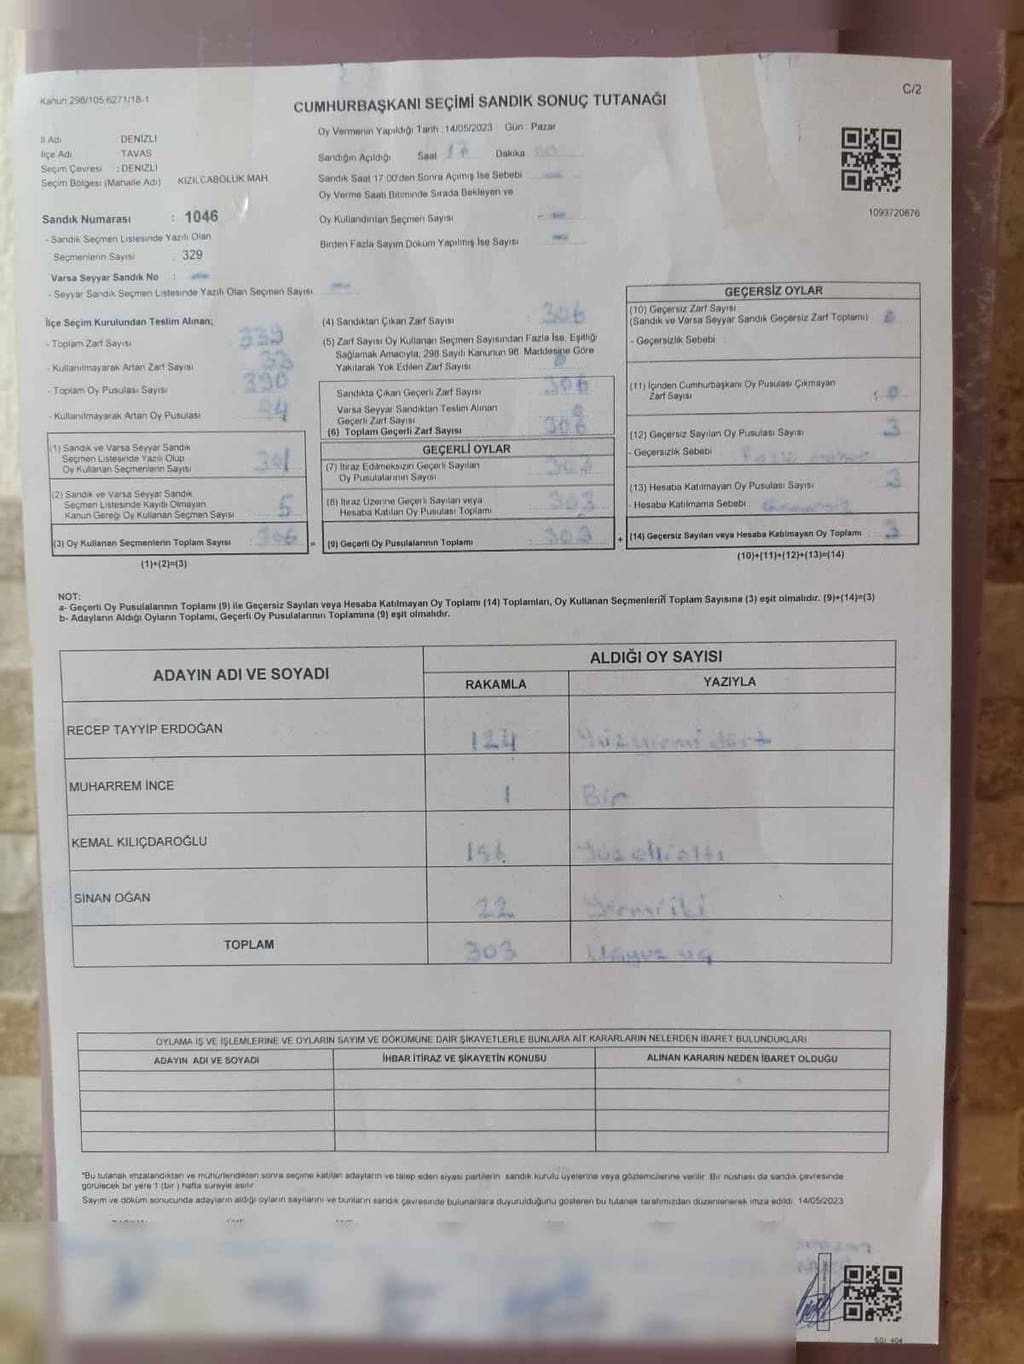 Kanun 298/105,6271/18-1
C/2
CUMHURBAŞKANI SEÇİMİ SANDIK SONUÇ TUTANAĞI
Oy Vermenin Yapıldığı Tarih :14/05/2023 Gün : Pazar
İl Adı DENİZLİ
İlçe Adı TAVAS
Seçim Çevresi : DENİZLİ
Seçim Bölgesi (Mahalle Adı) KIZILCABÖLÜK MAH
Sandığın Açıldığı Saat 17 Dakika
Sandık Saat 17:00'den Sonra Açımış İse Sebebi
Oy Verme Saati Bitiminde Sırada Bekleyen ve
Oy Kullandırılan Seçmen Sayısı
Birden Fazla Sayım Döküm Yapılmış İse Sayısı
1093720876
Sandık Numarası : 1046
- Sandık Seçmen Listesinde Yazılı Olan
Seçmenlerin Sayısı 329
Varsa Seyyar Sandık No :
- Seyyar Sandık Seçmen Listesinde Yazılı Olan Seçmen Sayısı
İlçe Seçim Kurulundan Teslim Alınan;
- Toplam Zarf Sayısı 339
- Kullanılmayarak Artan Zarf Sayısı 33
- Toplam Oy Pusulası Sayısı 390
- Kullanılmayarak Artan Oy Pusulası 84
(1) Sandık ve Varsa Seyyar Sandık
Seçmen Listesinde Yazılı Olup
Oy Kullanan Seçmenlerin Sayısı 301
(2) Sandık ve Varsa Seyyar Sandık
Seçmen Listesinde Kayıtlı Olmayan
Kanun Gereği Oy Kullanan Seçmen Sayısı 5
(3) Oy Kullanan Seçmenlerin Toplam Sayısı 306 =
(1)+(2)=(3)
(4) Sandıktan Çıkan Zarf Sayısı 306
(5) Zarf Sayısı Oy Kullanan Seçmen Sayısından Fazla İse, Eşitliği
Sağlamak Amacıyla, 298 Sayılı Kanunun 98. Maddesine Göre
Yakılarak Yok Edilen Zarf Sayısı 0
Sandıkta Çıkan Geçerli Zarf Sayısı 306
Varsa Seyyar Sandıktan Teslim Alınan
Geçerli Zarf Sayısı 0
(6) Toplam Geçerli Zarf Sayısı 306
GEÇERLİ OYLAR
(7) İtiraz Edilmeksizin Geçerli Sayılan
Oy Pusulalarının Sayısı 303
(8) İtiraz Üzerine Geçerli Sayılan veya
Hesaba Katılan Oy Pusulası Toplamı 303
(9) Geçerli Oy Pusulalarının Toplamı 303 +
GEÇERSİZ OYLAR
(10) Geçersiz Zarf Sayısı
(Sandık ve Varsa Seyyar Sandık Geçersiz Zarf Toplamı) 0
- Geçersizlik Sebebi :
(11) İçinden Cumhurbaşkanı Oy Pusulası Çıkmayan
Zarf Sayısı : 0
(12) Geçersiz Sayılan Oy Pusulası Sayısı 3
- Geçersizlik Sebebi :
(13) Hesaba Katılmayan Oy Pusulası Sayısı 3
- Hesaba Katılmama Sebebi
(14) Geçersiz Sayılan veya Hesaba Katılmayan Oy Toplamı 3
(10)+(11)+(12)+(13)=(14)
NOT:
a- Geçerli Oy Pusulalarının Toplamı (9) ile Geçersiz Sayılan veya Hesaba Katılmayan Oy Toplamı (14) Toplamları, Oy Kullanan Seçmenlerin Toplam Sayısına (3) eşit olmalıdır. (9)+(14)=(3)
b- Adayların Aldığı Oyların Toplamı, Geçerli Oy Pusulalarının Toplamına (9) eşit olmalıdır.
ADAYIN ADI VE SOYADI
ALDIĞI OY SAYISI
RAKAMLA YAZIYLA
RECEP TAYYİP ERDOĞAN 124 Yüzyirmi dört
MUHARREM İNCE 1 Bir
KEMAL KILIÇDAROĞLU 156 Yüzelli altı
SİNAN OĞAN 22 Yirmi iki
TOPLAM 303 Üçyüz üç
OYLAMA İŞ VE İŞLEMLERİNE VE OYLARIN SAYIM VE DÖKÜMÜNE DAİR ŞİKAYETLERLE BUNLARA AİT KARARLARIN NELERDEN İBARET BULUNDUKLARI
ADAYIN ADI VE SOYADI İHBAR İTİRAZ VE ŞİKAYETİN KONUSU ALINAN KARARIN NEDEN İBARET OLDUĞU
*Bu tutanak imzalandıktan ve mühürlendikten sonra seçime katılan adayların ve talep eden siyasi partilerin sandık kurulu üyelerine veya gözlemcilerine verilir. Bir nüshası da sandık çevresinde
görülecek bir yere 1 (bir ) hafta süreyle asılır
Sayım ve döküm sonucunda adayların aldığı oyların sayılarını ve bunların sandık çevresinde bulunanlara duyurulduğunu gösteren bu tutanak tarafımızdan düzenlenerek imza edildi. 14/05/2023